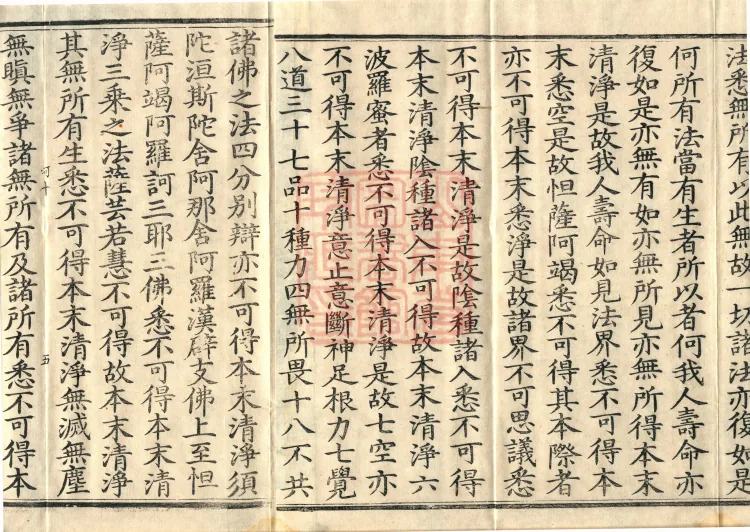 法悉無所有以此無故一切諸法亦復如是
何所有法當有生者所以者何我人壽命亦
復如是亦無有如亦無所見亦無所得本末
清淨是故我人壽命如見法界悉不可得本
末悉空是故怛薩阿竭悉不可得其本際者
亦不可得本末悉淨是故諸界不可思議悉
不可得本末清淨是故陰種諸入悉不可得
本末清淨陰種諸入不可得故本末清淨六
波羅蜜者悉不可得本末清淨是故七空亦
不可得本末清淨意止意斷神足根力七覺
八道三十七品十種力四無所畏十八不共
諸佛之法四分别辯亦不可得本末清淨須
陀洹斯陀舍阿那舍阿羅漢辟支佛上至怛
薩阿竭阿羅訶三耶三佛悉不可得本末清
淨三乘之法薩芸若慧不可得故本末清淨
其無所有生悉不可得本末清淨無滅無塵
可十 五
無瞋無爭諸無所有及諸所有悉不可得本